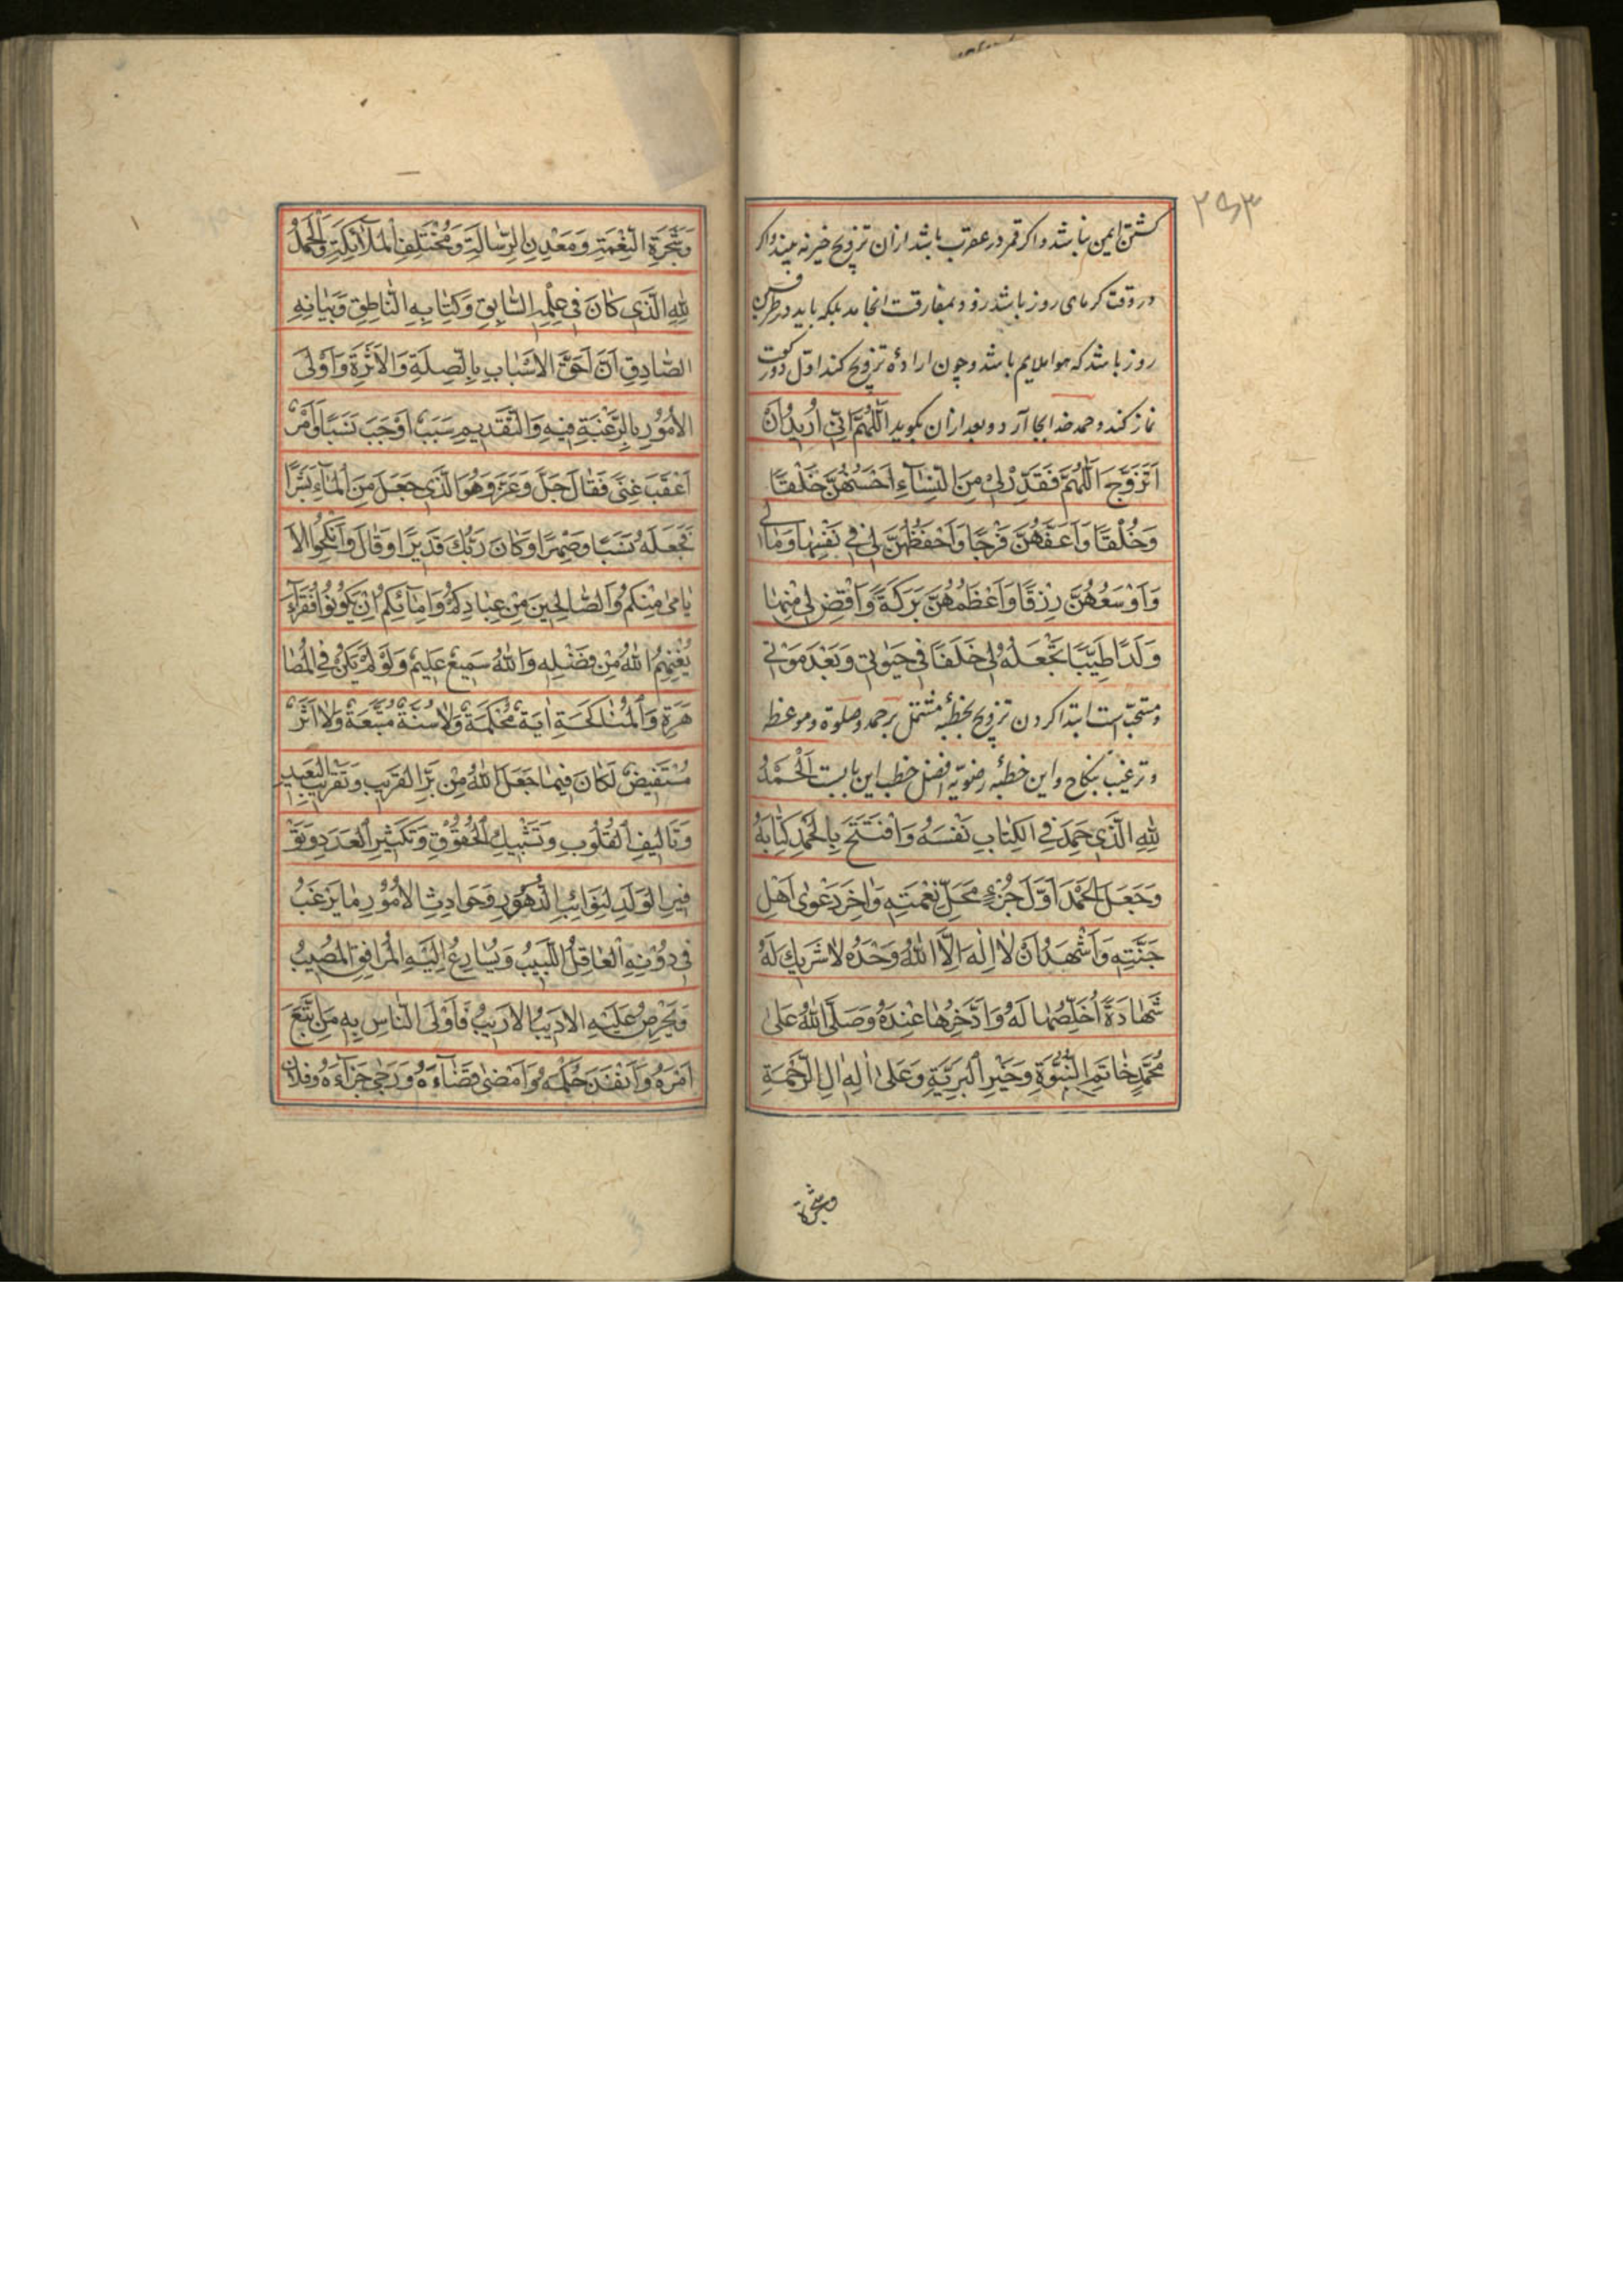 ۲۵۳
کشتن ایمن نباشد و اکر قمر در عقرب باشد ازان تزویج خیر نه بیند و اکر
در وقت کرمای روز باشد زود بمفارقت انجامد بلکه باید در طرفین
روز باشد که هوا ملایم باشد و چون ارادهٔ تزویج کند اول دو رکعت
نماز کند و حمد خدا بجا آرد و بعد ازان بکوید اَللّٰهُمَّ اِنّی اُرِیدُ اَنْ
اَتَزَوَّجَ اَللّٰهُمَّ فَقَدِّرْ لِی مِنَ النِّسَآءِ اَحْسَنَهُنَّ خَلْقًا
وَخُلْقًا وَاَعَفَّهُنَّ فَرْجًا وَاَحْفَظَهُنَّ لِی فِی نَفْسِهٰا وَمٰالِی
وَاَوْسَعُهُنَّ رِزْقًا وَاَعْظَمُهُنَّ بَرَکَةً وَاقْضِ لِی مِنْهٰا
وَلَدًا طَیِّبًا تَجْعَلُهُ لِی خَلَفًا فِی حَیٰوتِی وَبَعْدَ مَوْتِی
و مستحبّ است ابتدا کردن تزویج بخطبهٔ مشتمل بر حمد و صلوة و موعظه
و ترغیب بنکاح و این خطبهٔ رضویّه افضل خطب این بابست اَلْحَمْدُ
لِلّٰهِ الَّذِی حَمِدَ فِی الْکِتٰابِ نَفْسَهُ وَافْتَتَحَ بِالْحَمْدِ کِتٰابَهُ
وَجَعَلَ الْحَمْدَ اَوَّلَ جُزْءٍ مَحَلِّ نِعْمَتِهِ وَاٰخِرَ دَعْوٰی اَهْلِ
جَنَّتِهِ وَاَشْهَدُ اَنْ لٰا اِلٰهَ اِلَّا اللّٰهُ وَحْدَهُ لٰا شَرِیكَ لَهُ
شَهٰادَةً اُخَلِّصُهٰا لَهُ وَاَدَّخِرُهٰا عِنْدَهُ وَصَلَّی اللّٰهُ عَلٰی
مُحَمَّدٍ خٰاتَمِ النُّبُوَّةِ وَخَیْرِ الْبَرِیَّةِ وَعَلٰی اٰلِهِ اٰلِ الرَّحْمَةِ
وشجرة
وَشَجَرَةِ النِّعْمَةِ وَمَعْدِنِ الرِّسٰالَةِ وَمُخْتَلَفِ الْمَلٰآئِکَةِ وَالْحَمْدُ
لِلّٰهِ الَّذِی کٰانَ فِی عِلْمِهِ السّٰابِقِ وَکِتٰابِهِ النّٰاطِقِ وَبَیٰانِهِ
الصّٰادِقِ اَنَّ اَحَقَّ الْاَسْبٰابِ بِالصِّلَةِ وَالْاَثَرَةِ وَاَوْلَی
الْاُمُورِ بِالرَّغْبَةِ فِیهِ وَالتَّقْدِیمِ سَبَبٌ اَوْجَبَ نَسَبًا وَاَمْرٌ
اَعْقَبَ غِنًی فَقٰالَ جَلَّ وَعَزَّ وَهُوَ الَّذِی جَعَلَ مِنَ الْمٰآءِ بَشَرًا
فَجَعَلَهُ نَسَبًا وَصِهْرًا وَکٰانَ رَبُّكَ قَدِیرًا وَقٰالَ وَاَنْکِحُوا الْاَ
یٰامیٰ مِنْکُمْ وَالصّٰالِحِینَ مِنْ عِبٰادِکُمْ وَاِمٰآئِکُمْ اِنْ یَکُونُوا فُقَرٰآءَ
یُغْنِهِمُ اللّٰهُ مِنْ فَضْلِهِ وَاللّٰهُ سَمِیعٌ عَلِیمٌ وَلَوْ لَمْ یَکُنْ فِی الْمُصٰا
هَرَةِ وَالْمُنٰاکَحَةِ اٰیَةٌ مُحْکَمَةٌ وَلٰا سُنَّةٌ مُتَّبَعَةٌ وَلٰا اَثَرٌ
مُسْتَفِیضٌ لَکٰانَ فِیمٰا جَعَلَ اللّٰهُ مِنْ بَرِّ الْقَرِیبِ وَتَقْرِیبِ الْبَعِیدِ
وَتٰالِیفِ الْقُلُوبِ وَتَشْبِیكِ الْحُقُوقِ وَتَکْثِیرِ الْعَدَدِ وَتَوْ
فِیرِ الْوَلَدِ لِنَوٰائِبِ الدُّهُورِ وَحَوٰادِثِ الْاُمُورِ مٰا یَرْغَبُ
فِی دُونِهِ الْعٰاقِلُ اللَّبِیبُ وَیُسٰارِعُ اِلَیْهِ الْمُرٰافِقُ الْمُصِیبُ
وَیَحْرِصُ عَلَیْهِ الْاَدِیبُ الْاَرِیبُ فَاَوْلَی النّٰاسِ بِهِ مَنْ تَبِعَ
اَمْرَهُ وَاَنْفَذَ حُکْمَهُ وَاَمْضٰی قَضٰآءَهُ وَرَجٰی جَزٰآءَهُ وَفُلٰان